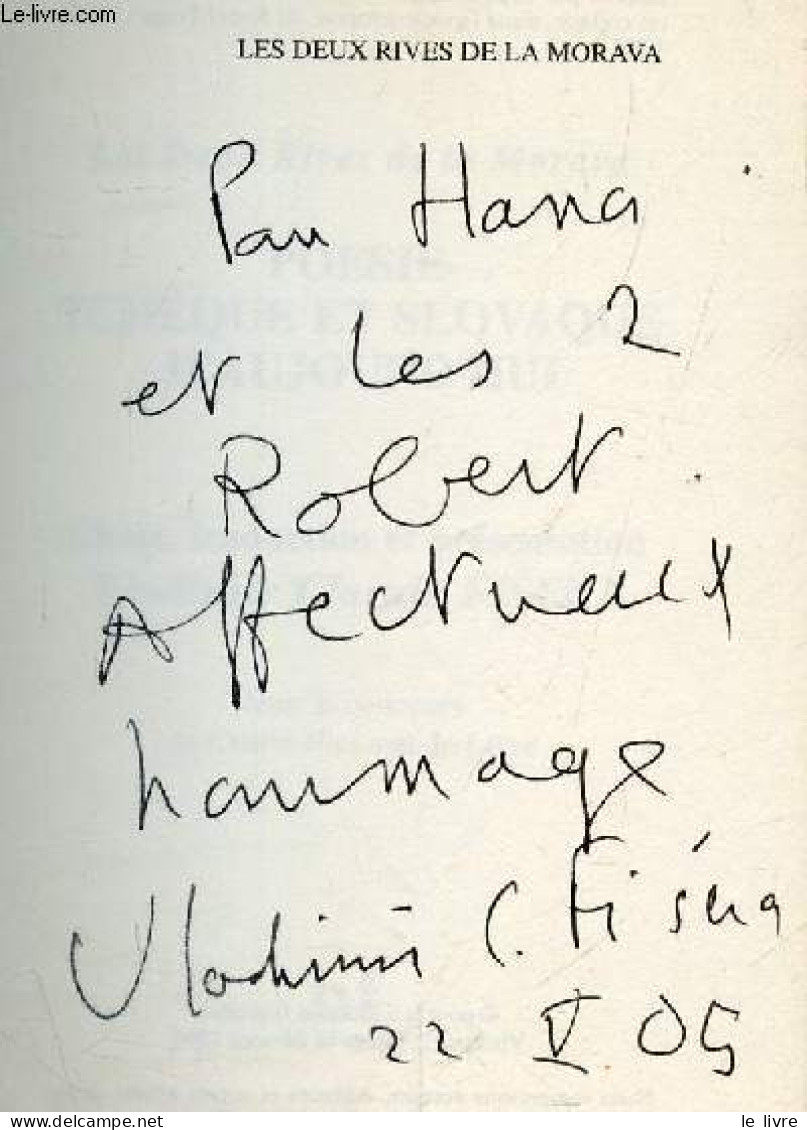 Le-livre.com
LES DEUX RIVES DE LA MORAVA
Pour Hana
et les 2
Robert.
Affectueux
hommage
Vladimir C. Fišera
22 V 05
le livre